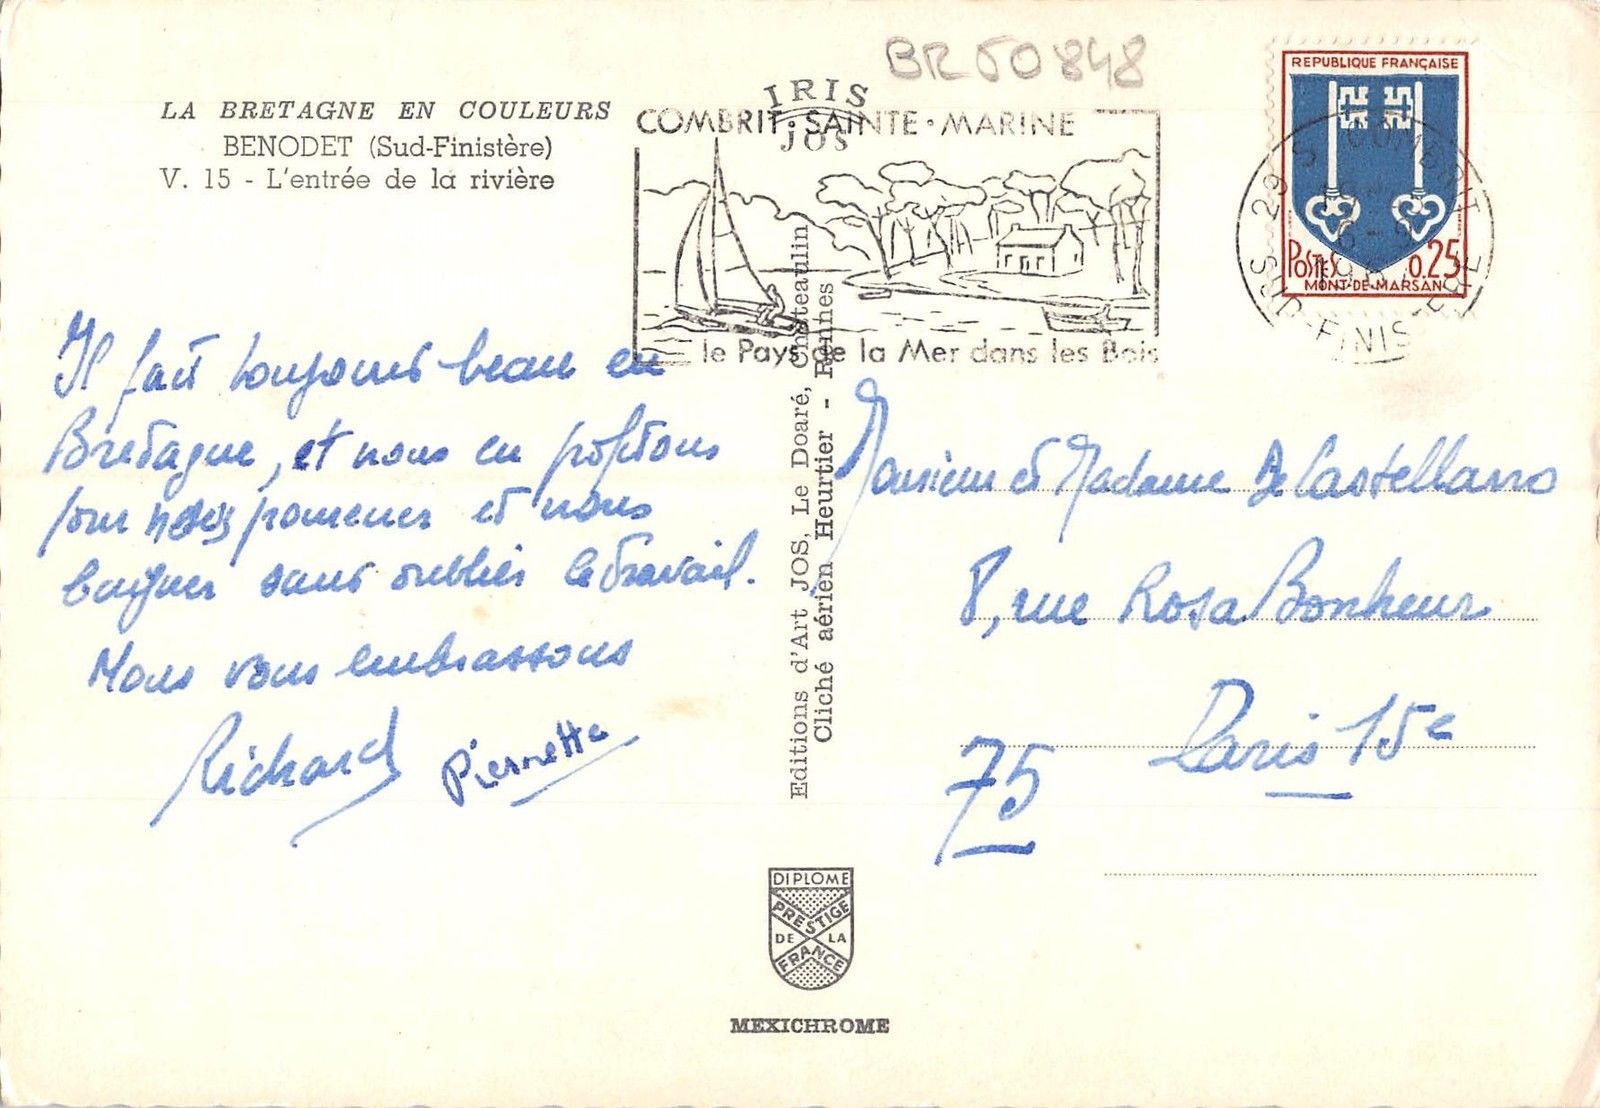 BR50848
LA BRETAGNE EN COULEURS
BENODET (Sud-Finistère)
V. 15 - L'entrée de la rivière
IRIS
JOS
COMBRIT • SAINTE • MARINE
le Pays de la Mer dans les Bois
REPUBLIQUE FRANÇAISE
POSTES 0,25
MONT-DE-MARSAN
29 S COMBRIT
SUD-FINISTERE
Il fait toujours beau en
Bretagne, et nous en profitons
pour nous promener et nous
baigner sans oublier le travail.
Nous vous embrassons
Richard Pierrette
Editions d'Art JOS, Le Doaré, Châteaulin
Cliché aérien Heurtier - Rennes
Monsieur et Madame De Castellarro
8, rue Rosa Bonheur
75 Paris 15e
DIPLOME
PRESTIGE
DE LA
FRANCE
MEXICHROME